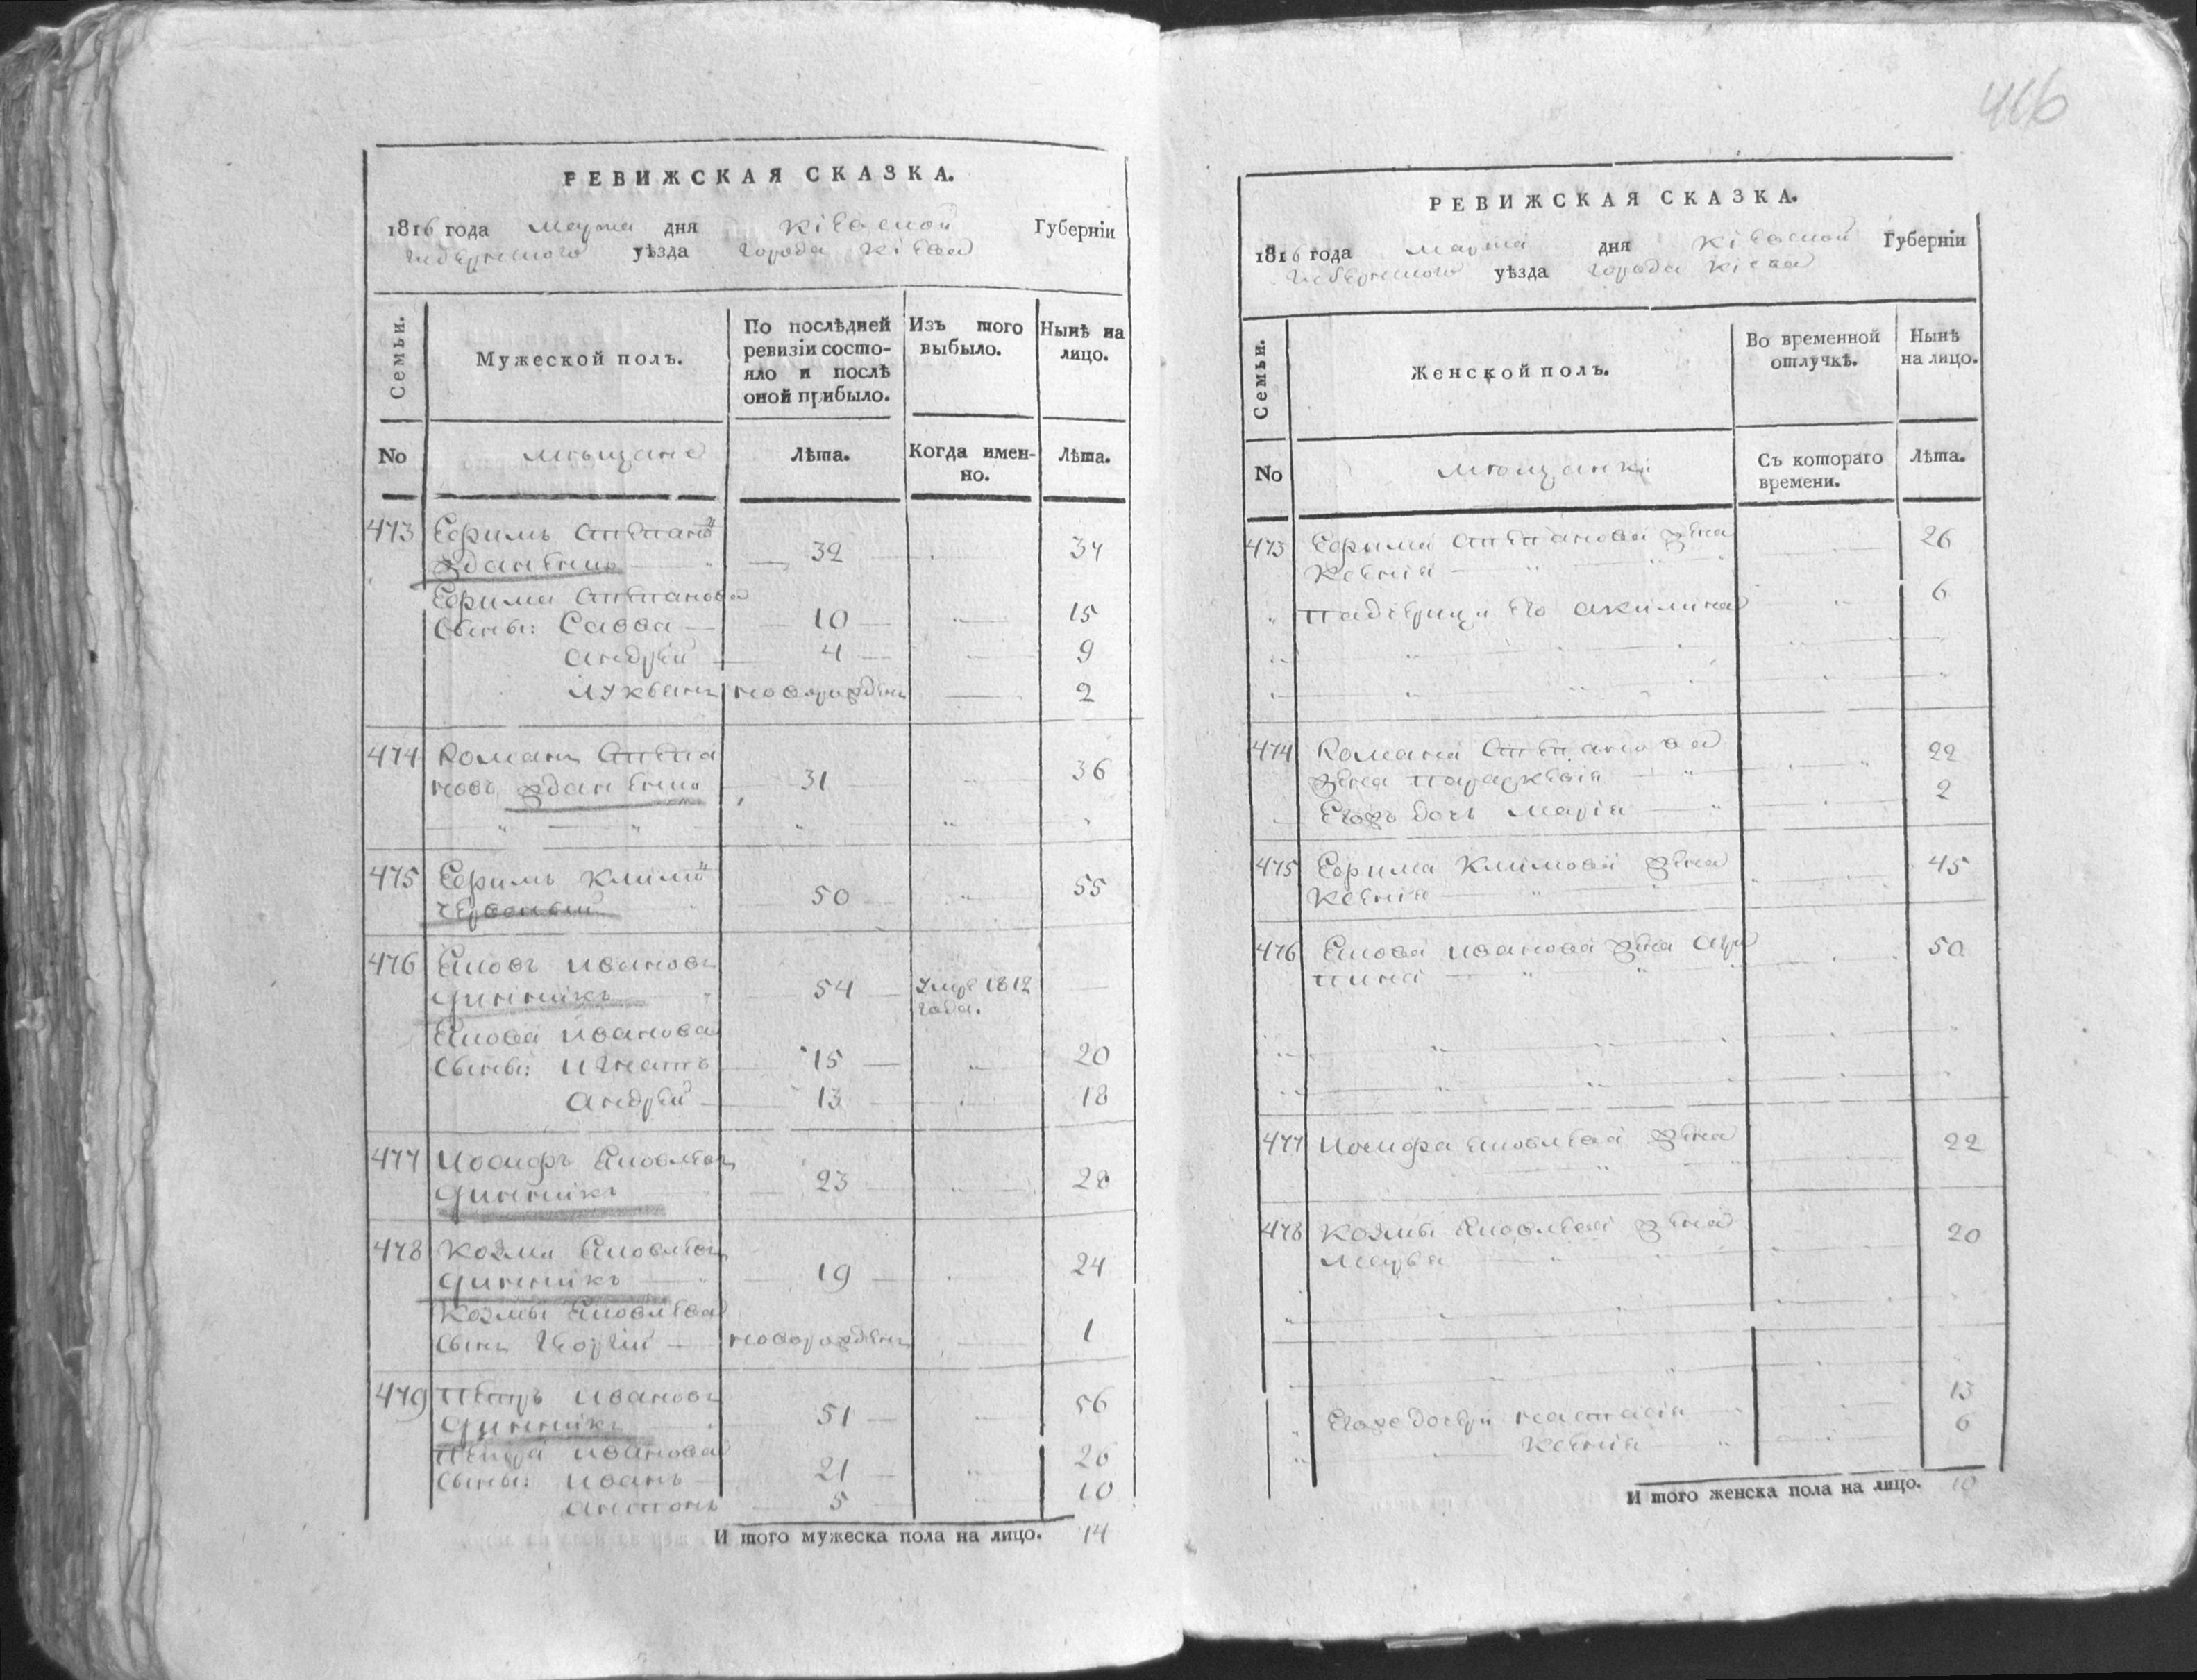 РЕВИЖСКАЯ СКАЗКА.
1816 года марта дня Кіевской Губерніи
Губернского уѣзда города Кіева
Семьи.
Мужеской полъ.
По послѣдней ревизіи состо-
яло и послѣ
оной прибыло.
Изъ того
выбыло.
Нынѣ на
лицо.
No
мѣщане
Лѣта.
Когда имен-
но.
Лѣта.
473 Ефимъ Степановъ
Жданенко 32 34
Ефима Степанова
сыны: Савва 10 15
Андрей 4 9
Лукьянъ новорожденъ 2
474 Романъ Степа
новъ Жданенко 31 36
475 Ефимъ Климовъ
50 55
476 Яковъ Ивановъ
Динникъ 54 Умре 1812
года.
Якова Иванова
сыны: Игнатъ 15 20
Андрей 13 18
477 Иосифъ Яковлевъ
Динникъ 23 28
478 Козма Яковлевъ
Динникъ 19 24
Козмы Яковлева
сынъ Георгій новорожденъ 1
479 Петръ Ивановъ
Динникъ 51 56
Петра Иванова
сыны: Иванъ 21 26
Антонъ 5 10
И того мужеска пола на лицо. 14
416
РЕВИЖСКАЯ СКАЗКА.
1816 года марта дня Кіевской Губерніи
Губернского уѣзда города Кіева
Семьи.
Женской полъ.
Во временной
отлучкѣ.
Нынѣ
на лицо.
No
мѣщанки
Съ котораго
времени.
Лѣта.
473 Ефима Степанова жена 26
Ксенія
падчерица его Акилина 6
474 Романа Степанова
жена Параскевія 22
Егожъ дочь Марія 2
475 Ефима Климова жена 45
Ксенія
476 Якова Иванова жена Агри 50
пина
477 Иосифа Яковлева жена 22
478 Козмы Яковлева жена 20
Марья
Егоже дочери Настасія 13
Ксенія 6
И того женска пола на лицо. 10